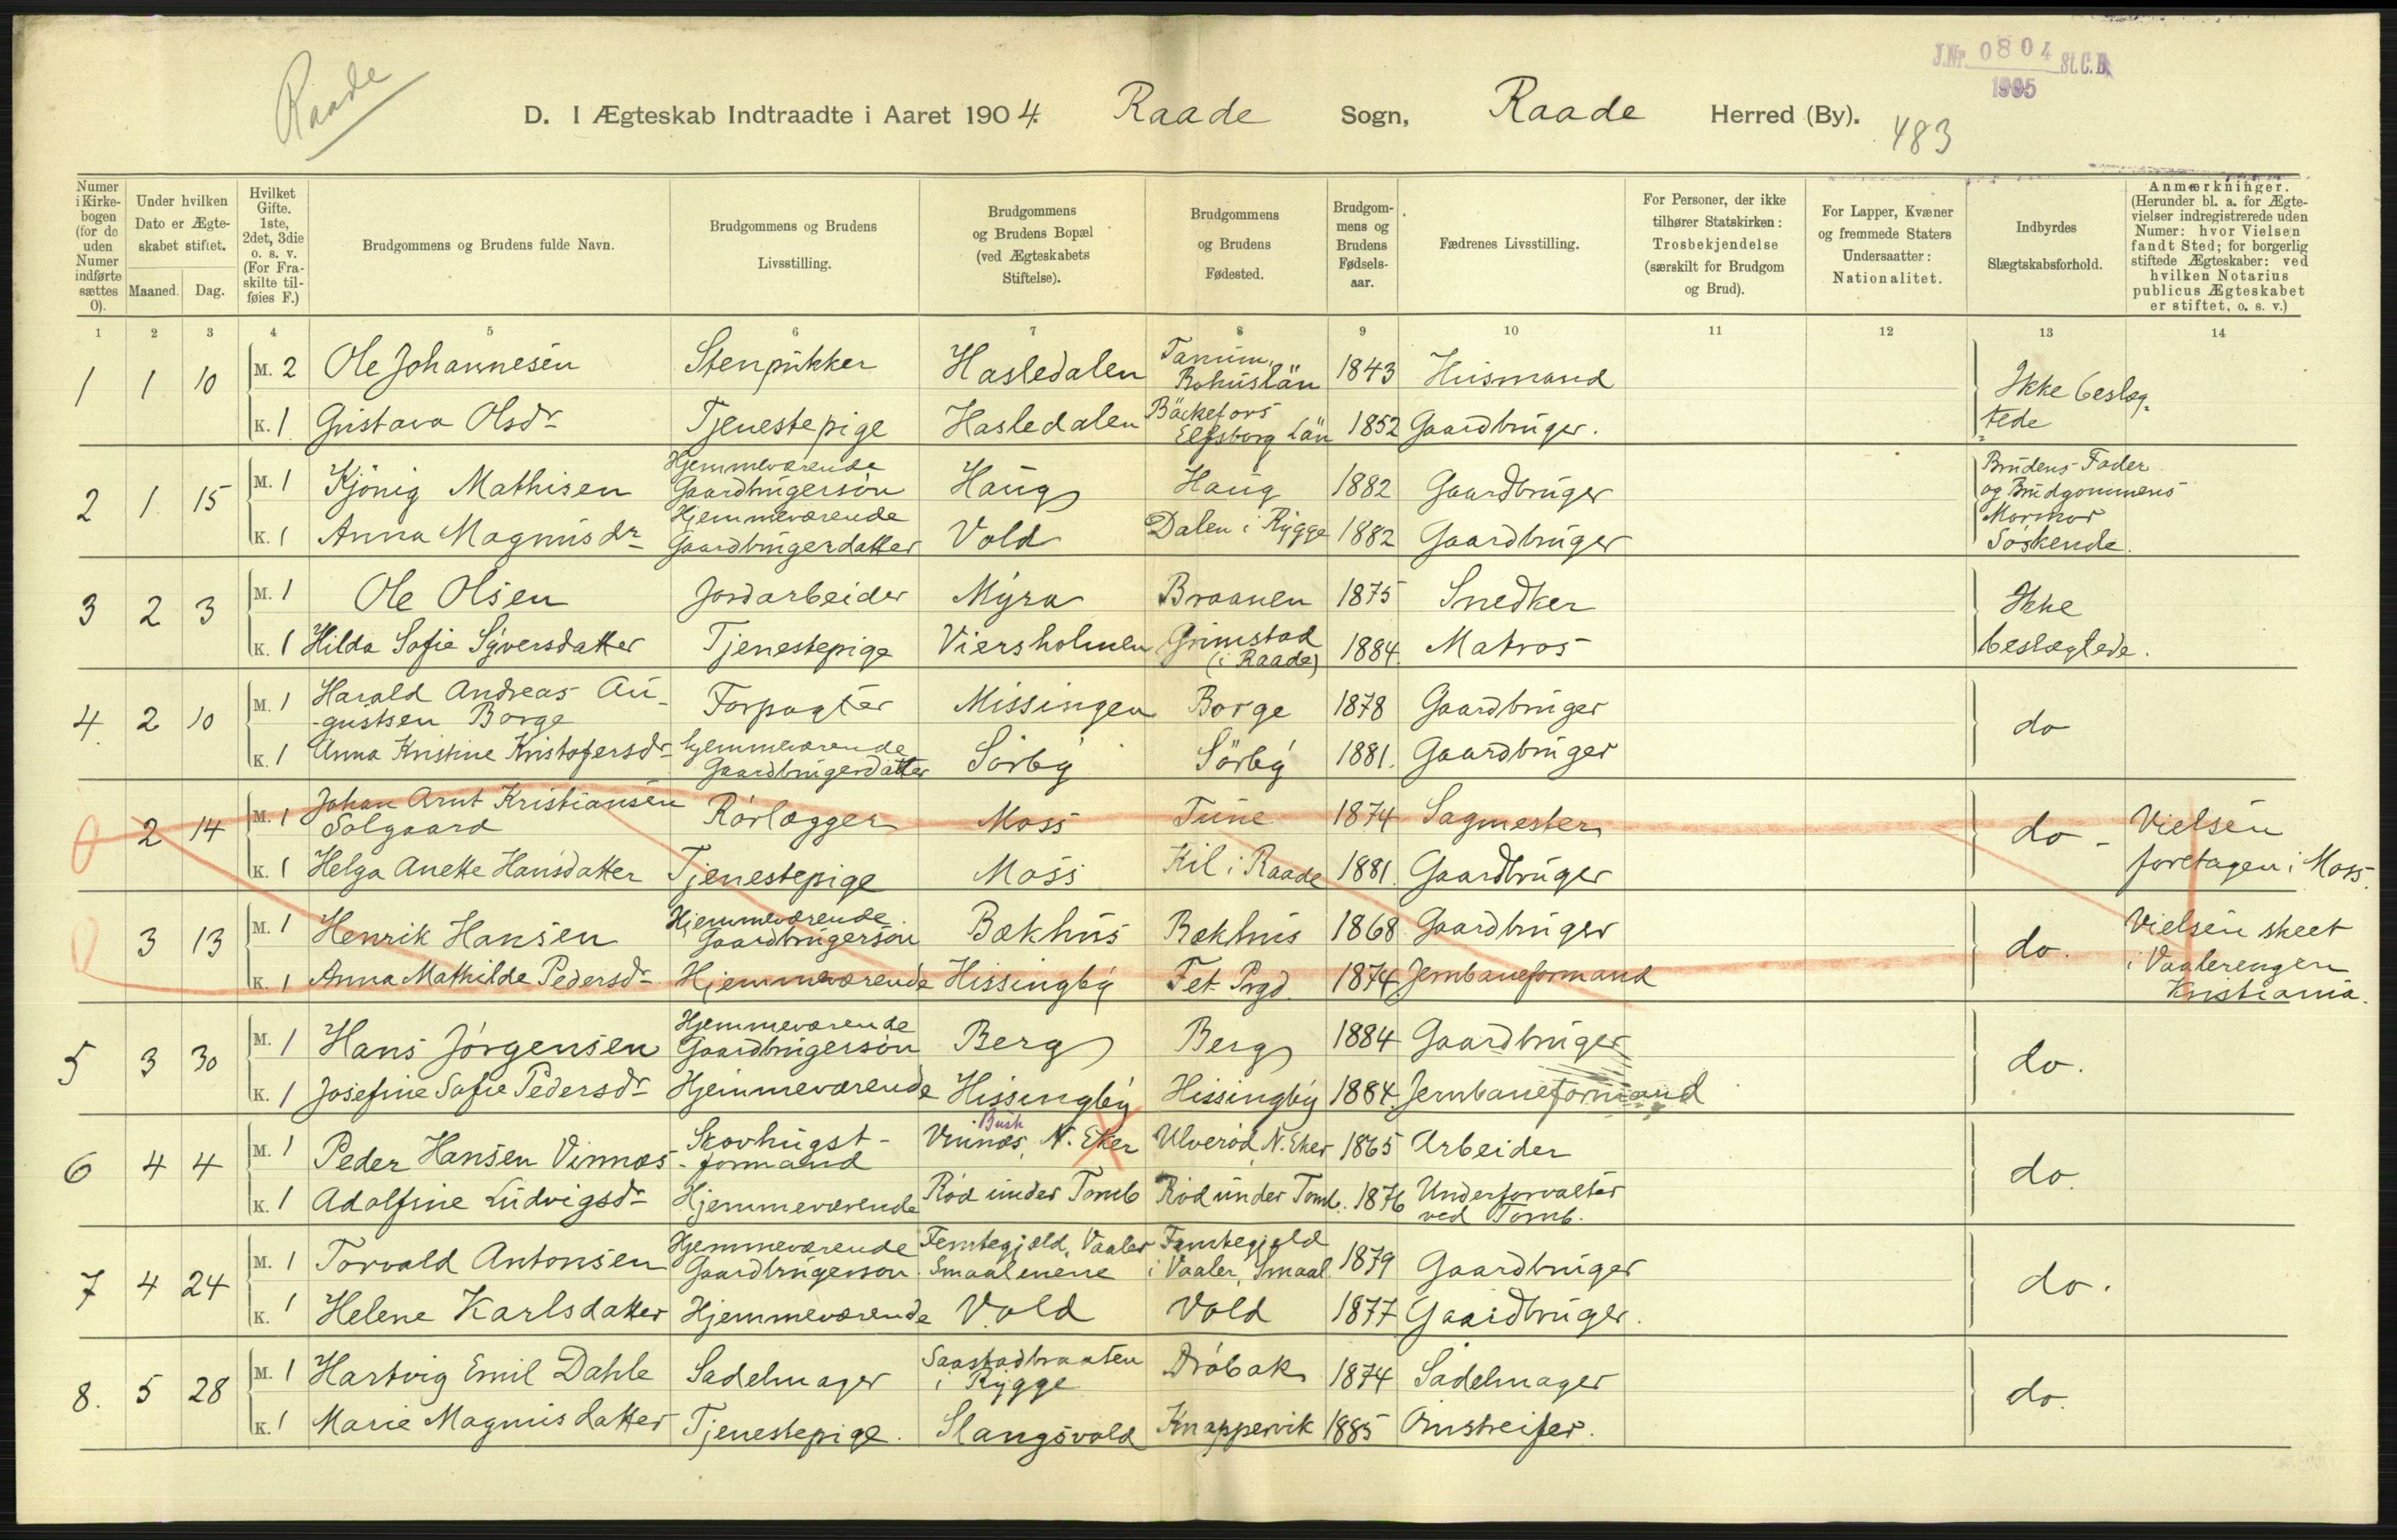 Raade
J.Nr. 0804 St.C.B.
1905
D. I Ægteskab Indtraadte i Aaret 1904. Raade Sogn, Raade Herred (By).
483
Numer i Kirkebogen (for de uden Numer indførte sættes 0).
Under hvilken Dato er Ægteskabet stiftet.
Maaned. Dag.
Hvilket Gifte. 1ste, 2det, 3die o. s. v. (For Fraskilte tilføies F.)
Brudgommens og Brudens fulde Navn.
Brudgommens og Brudens Livsstilling.
Brudgommens og Brudens Bopæl (ved Ægteskabets Stiftelse).
Brudgommens og Brudens Fødested.
Brudgommens og Brudens Fødselsaar.
Fædrenes Livsstilling.
For Personer, der ikke tilhører Statskirken: Trosbekjendelse (særskilt for Brudgom og Brud).
For Lapper, Kvæner og fremmede Staters Undersaatter: Nationalitet.
Indbyrdes Slægtskabsforhold.
Anmærkninger. (Herunder bl. a. for Ægtevielser indregistrerede uden Numer: hvor Vielsen fandt Sted; for borgerlig stiftede Ægteskaber: ved hvilken Notarius publicus Ægteskabet er stiftet, o. s. v.)
1 2 3 4 5 6 7 8 9 10 11 12 13 14
1 1 10 M. 2 Ole Johannesen Stenpukker Hasledalen Tanum, Bohuslän 1843 Husmand Ikke beslæg-
K. 1 Gustava Olsdr Tjenestepige Hasledalen Bäckefors Elfsborg Län 1852 Gaardbruger. tede
2 1 15 M. 1 Kjönig Mathisen Hjemmeværende Gaardbrugersön Haug Haug 1882 Gaardbruger Brudens Fader og Brudgommens
K. 1 Anna Magnusdr Hjemmeværende Gaardbrugerdatter Vold Dalen i Rygge 1882 Gaardbruger Mormor Söskende.
3 2 3 M. 1 Ole Olsen Jordarbeider Myra Braanen 1875 Snedker Ikke
K. 1 Hilda Sofie Syversdatter Tjenestepige Viersholmen Grimstad (i Raade) 1884. Matros beslægtede.
4. 2 10 M. 1 Harald Andreas Au-gustsen Borge Forpagter Missingen Borge 1878 Gaardbruger do
K. 1 Anna Kristine Kristofersdr hjemmeværende Gaardbrugerdatter Sörby Sörby 1881. Gaardbruger
0 2 14 M. 1 Johan Arnt Kristiansen Solgaard Rörlægger Moss Tune 1874 Sagmester do - Vielsen
K. 1 Helga Anette Hansdatter Tjenestepige Moss Kil i Raade 1881. Gaardbruger foretagen i Moss.
0 3 13 M. 1 Henrik Hansen Hjemmeværende Gaardbrugersön Bækhus Bækhus 1868 Gaardbruger do. Vielsen skeet
K. 1 Anna Mathilde Pedersdr Hjemmeværende Hissingby Fet Prgd. 1874 Jernbaneformand i Vaalerengen Kristiania.
5 3 30 M. 1 Hans Jörgensen Hjemmeværende Gaardbrugersön Berg Berg 1884 Gaardbruger do.
K. 1 Josefine Sofie Pedersdr Hjemmeværende Hissingby Hissingby 1884 Jernbaneformand
6 4 4 M. 1 Peder Hansen Vinnæs Skovhugst-formand Vinnæs, N. Eker Ulveröd, N. Eker 1865 Arbeider do.
K. 1 Adolfine Ludvigsdr Hjemmeværende Röd under Tomb Röd under Tomb. 1876 Underforvalter ved Tomb.
7 4 24 M. 1 Torvald Antonsen Hjemmeværende Gaardbrugerson Femtegjeld, Vaaler Smaalenene Femtegjeld i Vaaler, Smaal. 1879 Gaardbruger do.
K. 1 Helene Karlsdatter Hjemmeværende Vold Vold 1877 Gaardbruger.
8. 5 28 M. 1 Hartvig Emil Dahle Sadelmager Saastadbraaten i Rygge Dröbak 1874 Sadelmager do.
K. 1 Marie Magnusdatter Tjenestepige. Slangsvold Knappervik 1885 Omstreifer.